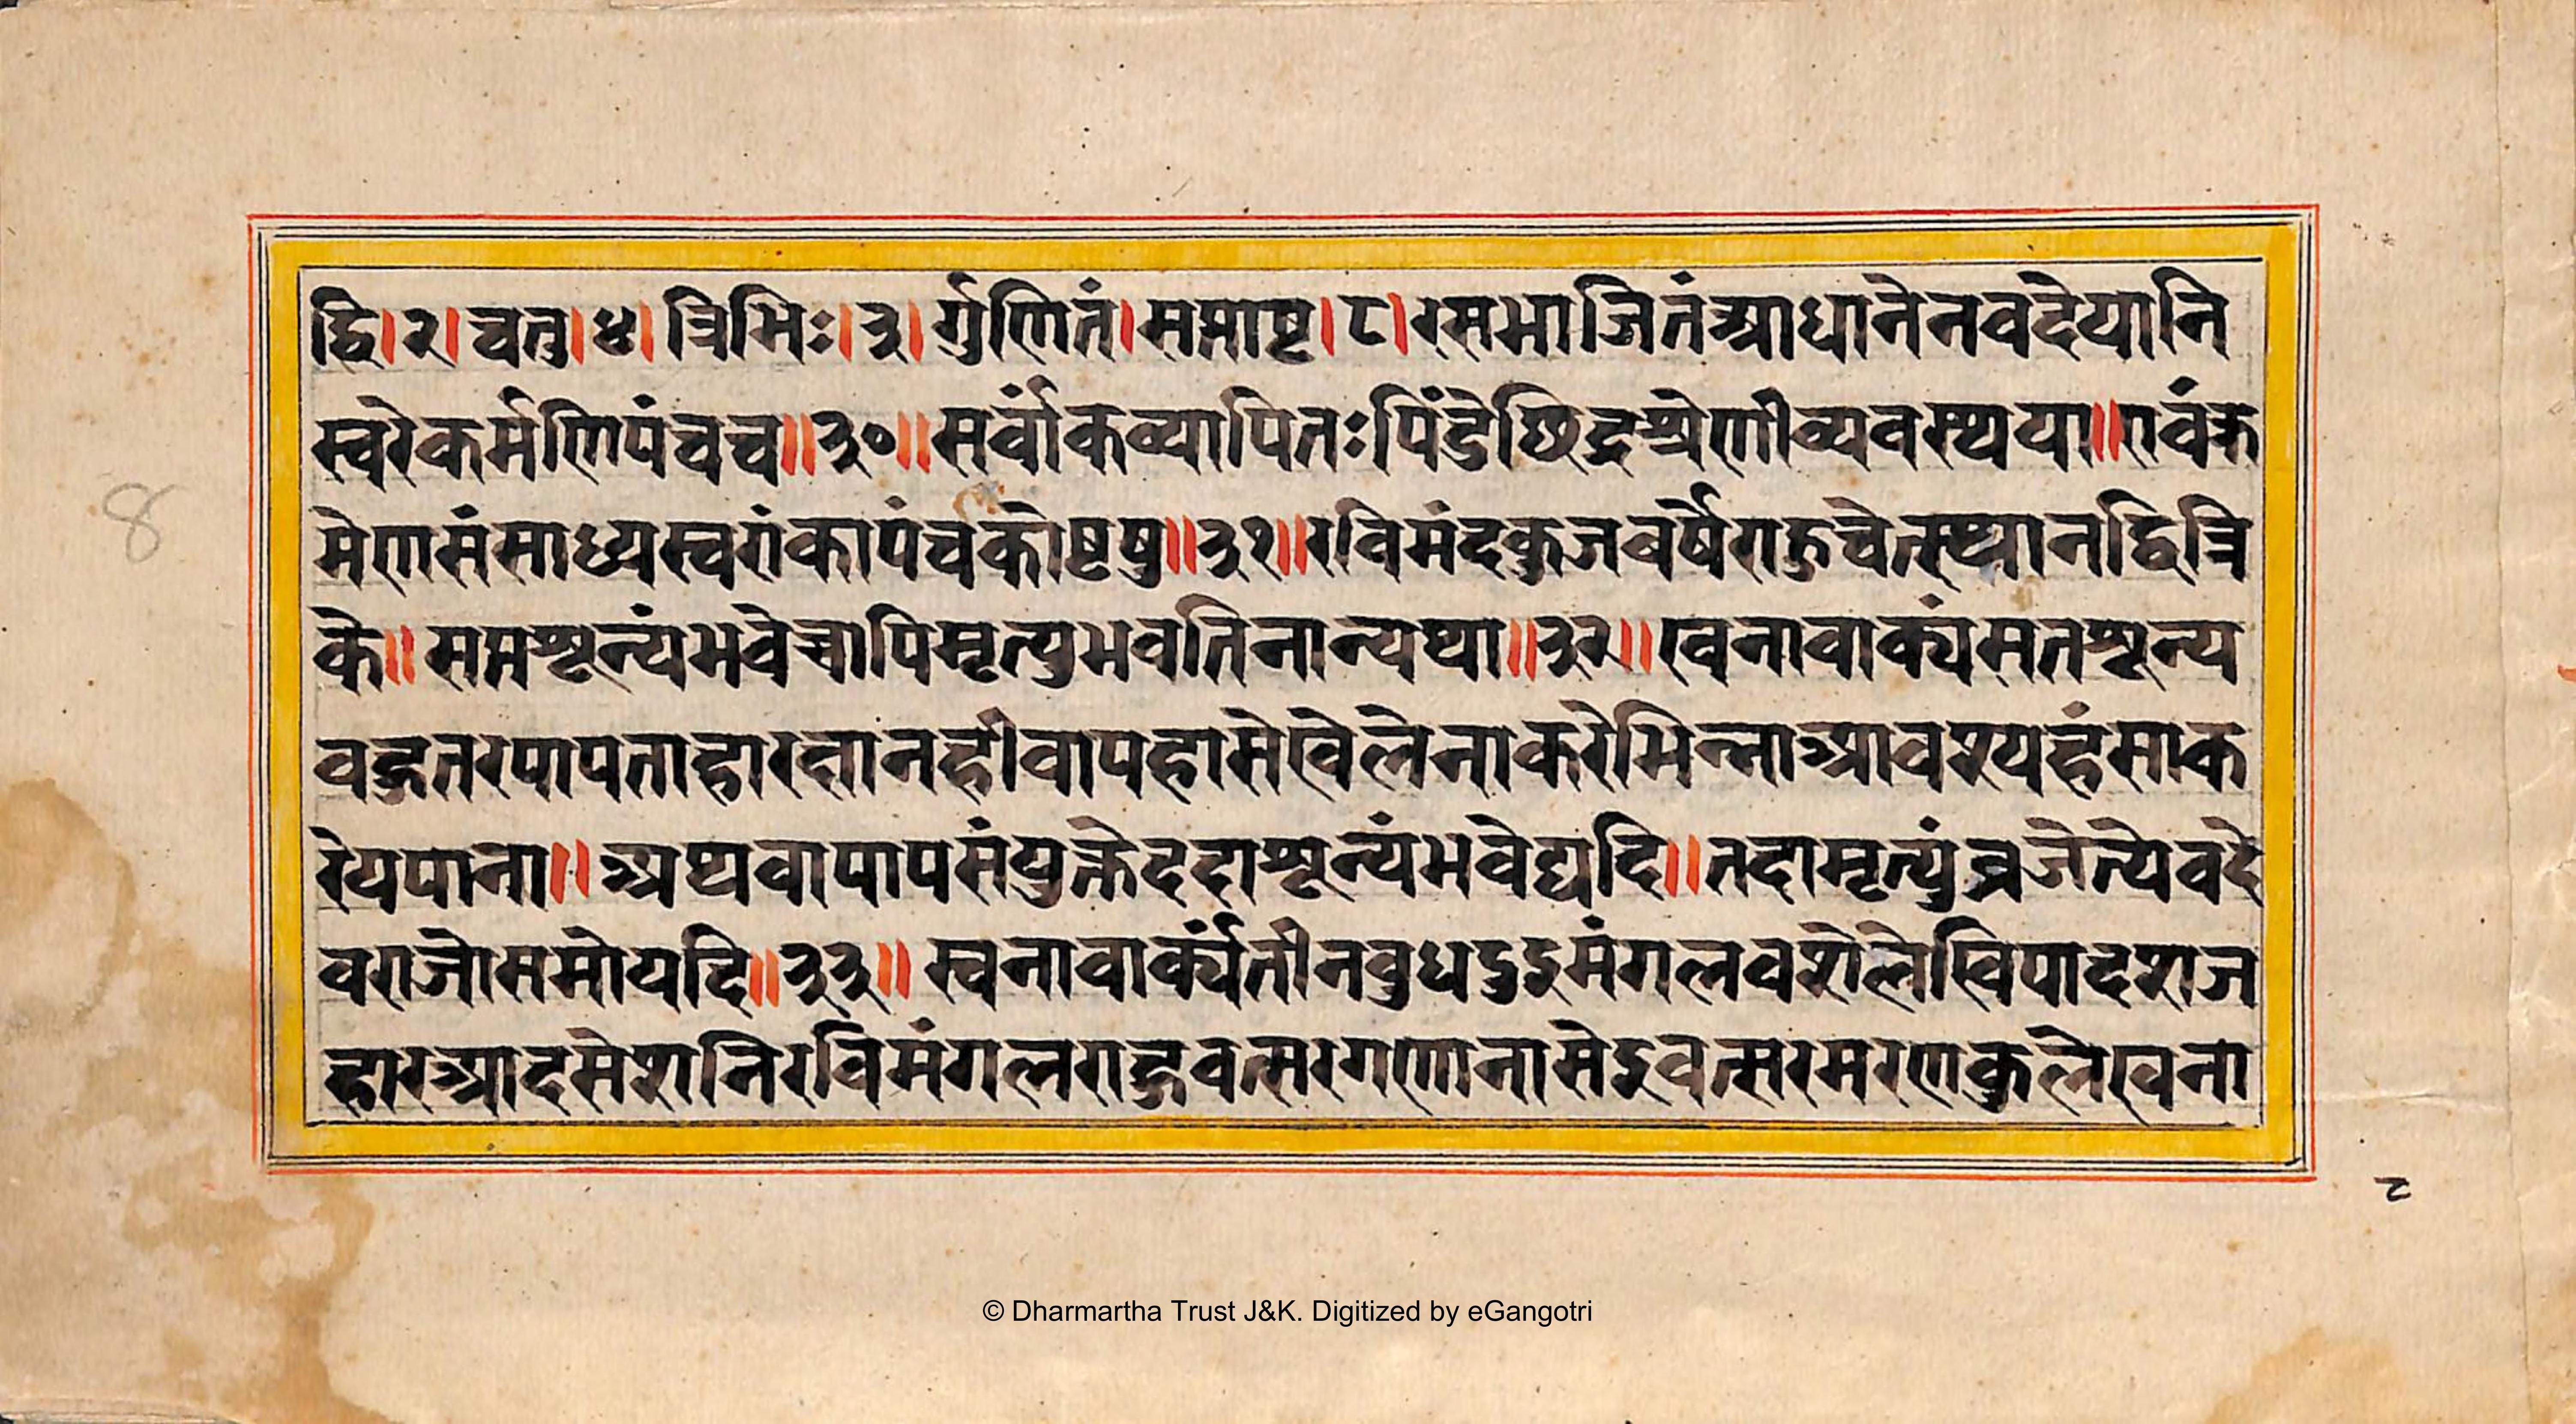 द्वि।२।चतु।४।त्रिभिः।३।र्गुणितं।सप्ताष्ट।८।रसभाजितंआधानेनवदेयानि
स्वरेकर्मणिपंचच॥३०॥सर्वांकव्यापितःपिंडेछिद्रश्रेणीव्यवस्थया॥एवंक्र
मेणसंसाध्यस्वरांकापंचकोष्टषु॥३१॥रविमंदकुजवर्षेराहुचेत्स्थानद्वित्रि
के॥सप्तशून्यंभवेच्चापिमृत्युभवतिनान्यथा॥३२॥स्वनावाक्यंसतशून्य
वद्गतरपापताहारनानहीवापहासेखेलेनाकरेभिन्नाआवश्यहंसाक
रेयपाना॥अथवापापसंयुक्तेददाशून्यंभवेद्यदि॥तदामृत्युंव्रजेत्येवदे
वराजोसमोयदि॥३३॥स्वनावार्क्यंतीनबुधद्रुडुमंगलवशेलेखिपादशज
हारआदमेशनिरविमंगलराहुवत्सरगणनासेडुवत्सरमरणकुलेखना
8
८
© Dharmartha Trust J&K. Digitized by eGangotri